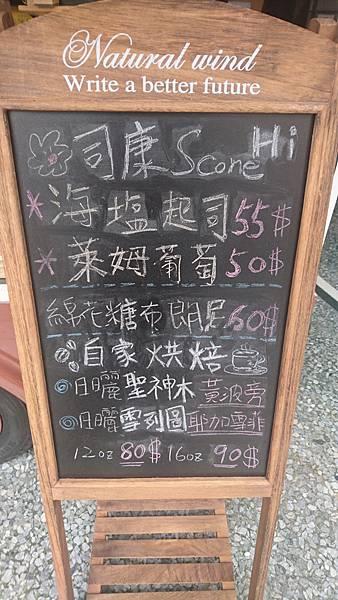 Natural wind
Write a better future
司康 Scone Hi
海塩起司 55$
萊姆葡萄 50$
綿花糖布朗尼 60$
自家烘焙
日曬聖神木 黃波旁
日曬雪列圖 耶加雪菲
12oz 80$ 16oz 90$